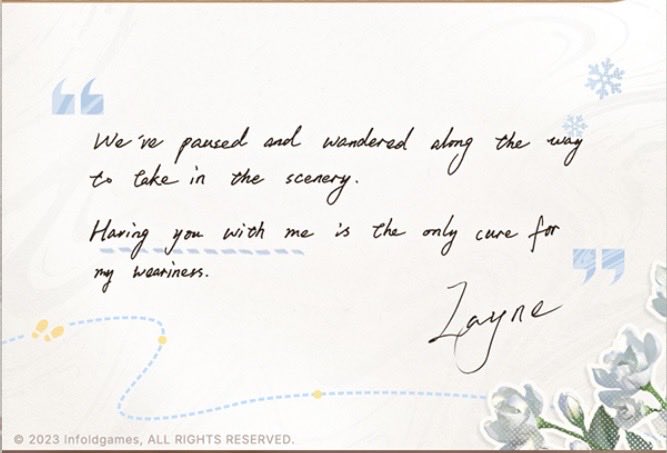 “
We've paused and wandered along the way
to take in the scenery.
Having you with me is the only cure for
my weariness.
”
Zayne
© 2023 Infoldgames, ALL RIGHTS RESERVED.